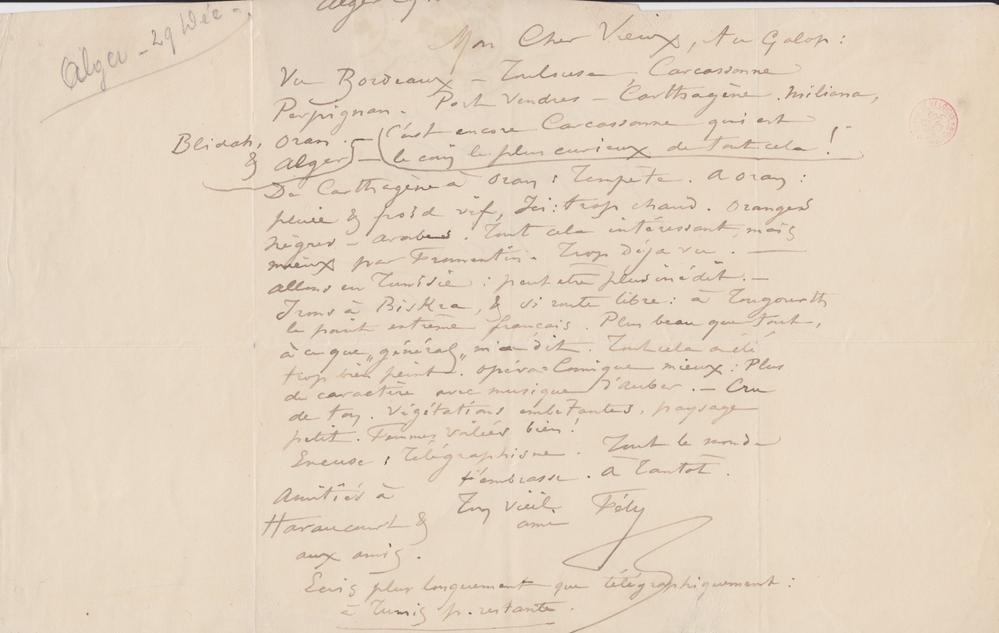 Alger - 29 Déc -
Mon Cher Vieux, Au Galop :
Vu Bordeaux - Toulouse, Carcassonne
Perpignan. Port Vendres - Carthagène. Miliana,
Blidah, Oran. - (C'est encore Carcassonne qui est
& Alger) - le coin le plus curieux de tout cela !
De Carthagène à Oran : Tempête. A Oran :
pluie & froid vif, Ici : trop chaud. Oranges
nègres - arabes. Tout cela intéressant, mais
mieux par Fromentin. Trop déja vu. -
allons en Tunisie : peut etre plus inédit. -
Irons à Biskra, & si route libre : à Tougourth
le point extrême français. Plus beau que tout,
à ce que „général„ m'a dit. Tout cela a été
trop bien peint. Opéra-Comique mieux : Plus
de caractère avec musique d'Auber. - Cru
de ton. Végétations embêtantes, paysage
petit. Femmes voilées bien !
Excuse : Télégraphisme. Tout le monde
t'embrasse. A Tantôt.
Amitiés à
Haraucourt &
aux amis.
Ton vieil
ami Fély
Ecris plus longuement que télégraphiquement :
à Tunis p. restante.